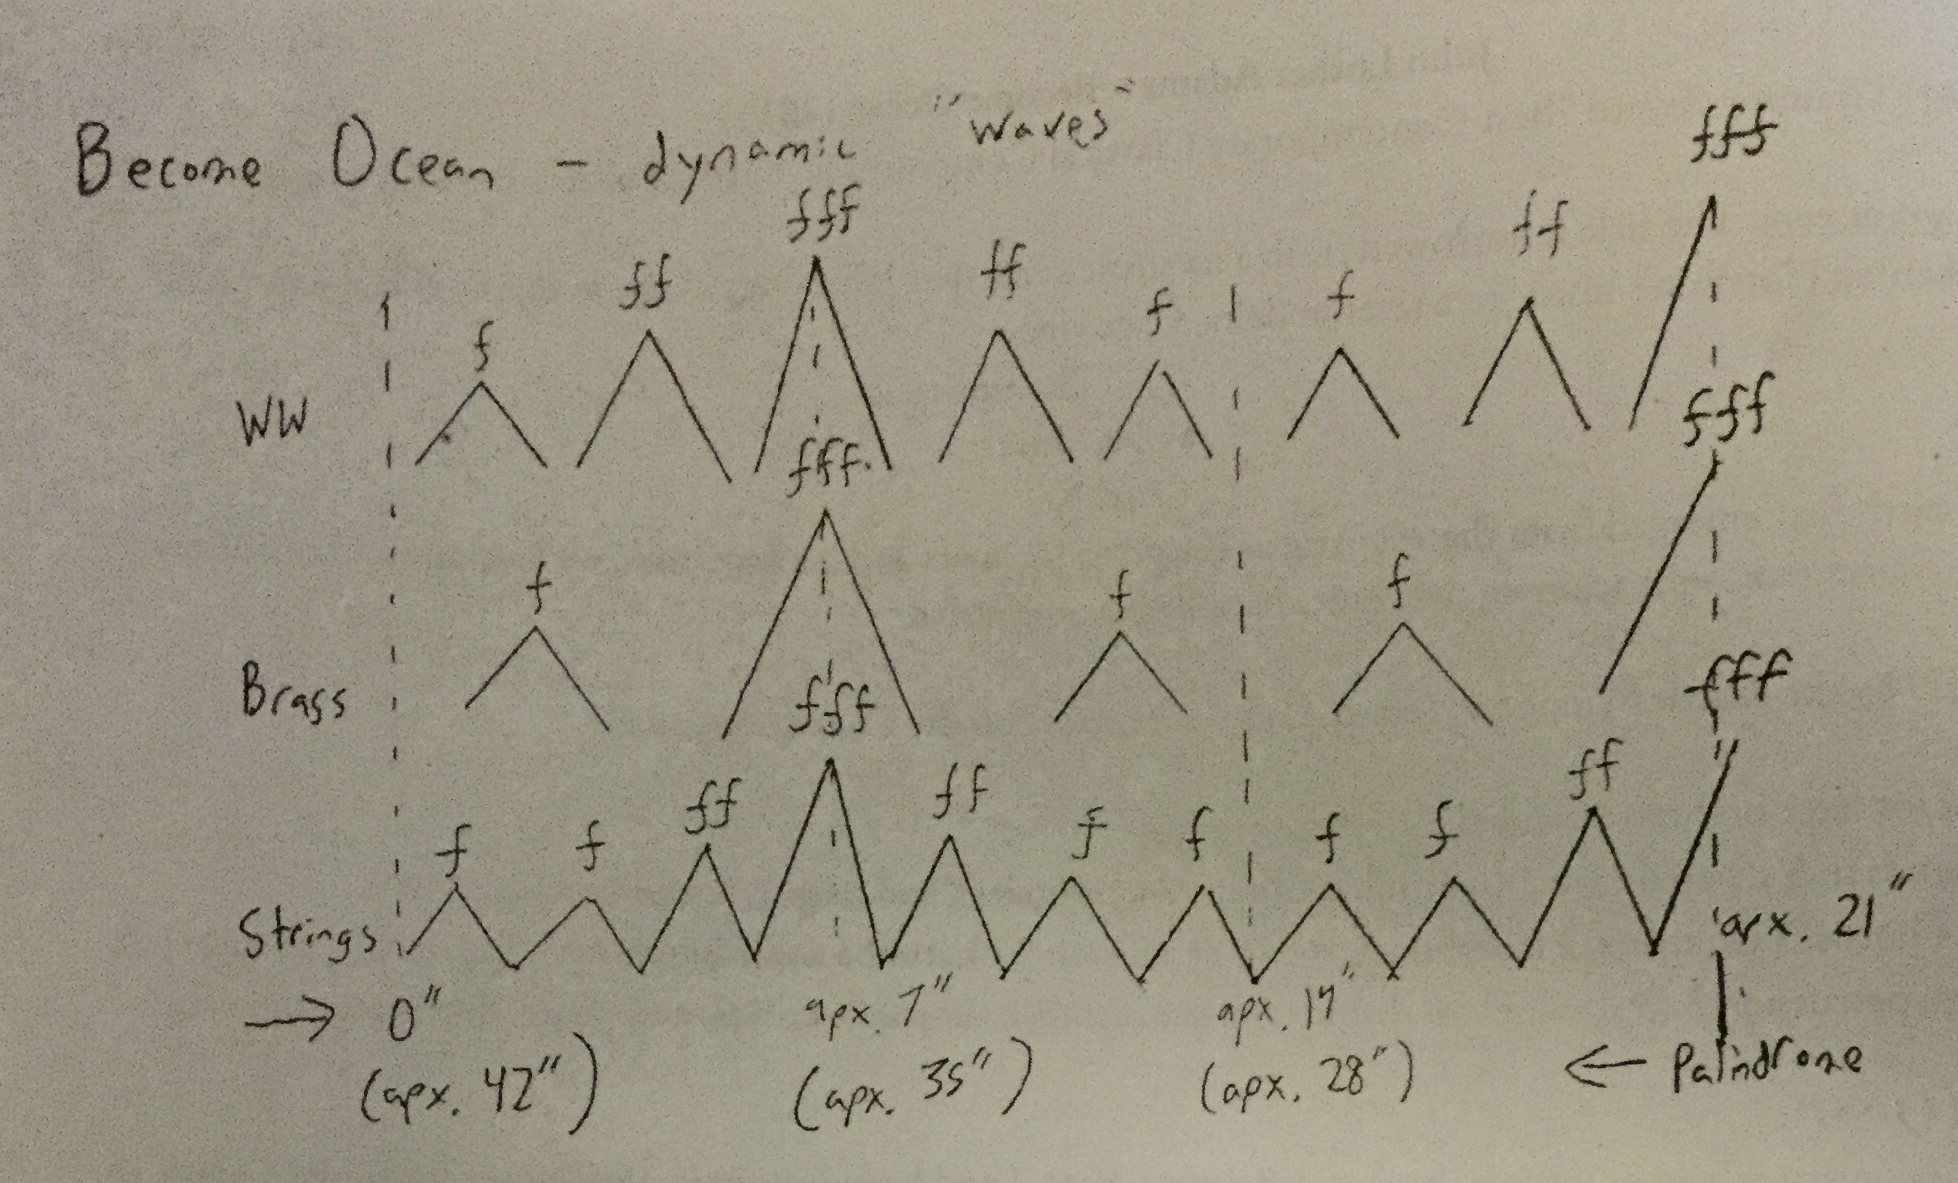 Become Ocean - dynamic "waves"
fff
fff
ff
ff
ff
f
f
f
WW
fff
fff
f
f
f
Brass
fff
fff
ff
ff
ff
f
f
f
f
f
f
Strings
apx. 21"
→ 0"
apx. 7"
apx. 14"
(apx. 42")
(apx. 35")
(apx. 28")
← Palindrome